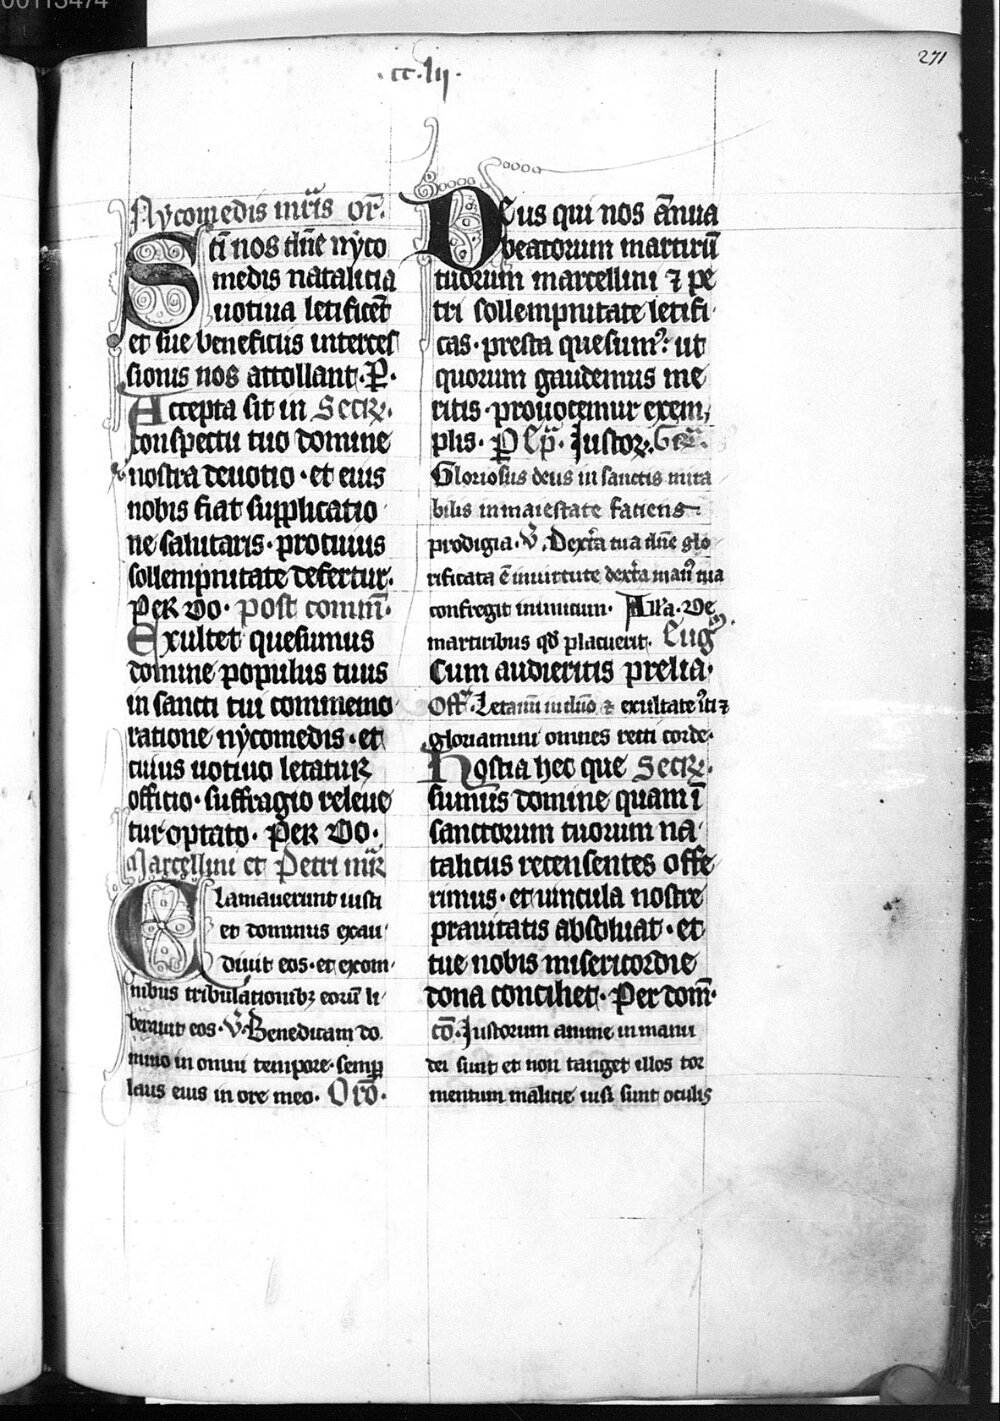 00113474
271
·cc·lij·
Nycomedis mr̄is or̄.
Sc̄i nos dn̄e nyco
medis natalicia
uotiua letificēt
et sue beneficiis interces
sionis nos attollant·P̲·
Accepta sit in Secrꝝ.
conspectu tuo domine
nostra deuotio·et eius
nobis fiat supplicatio
ne salutaris·pro cuius
sollempnitate defertur.
Per Do· post comm̄.
Exultet quesumus
domine populus tuus
in sancti tui commemo
ratione nycomedis·et
cuius uotiuo letatur
officio·suffragio releue
tur optato· Per Do·
Marcellini et Petri mr̄
Clamauerunt iusti
et dominus exau
diuit eos·et ex om
nibus tribulationibꝫ eorū li
berauit eos·V̄·Benedicam do
mino in omni tempore·semꝑ
laus eius in ore meo· Orō·
Deus qui nos ānua
beatorum martirū
tuorum marcellini ⁊ pe
tri sollempnitate letifi
cas·presta quesumꝰ: ut
quorum gaudemus me
ritis·prouocemur exem
plis· P̲ Ep̄· Iustoꝝ. Gr̄.
Gloriosus deus in sanctis mira
bilis in maiestate faciens
prodigia·V̄·Dext̄a tua dn̄e glo
rificata ē in uirtute dext̄a manꝰ tua
confregit inimicum· All̄a·De
martiribus qd̄ placuerit. Eug̅m̅.
Cum audieritis prelia·
Off̄·Letamī in dn̄o ⁊ exultate iꝰti ⁊
gloriamini omnes recti corde·
Hostia hec que Secrꝝ.
sumus domine quam ī
sanctorum tuorum na
taliciis recensentes offe
rimus·et uincula nostre
prauitatis absoluat·et
tue nobis misericordie
dona conciliet·Per dom̄·
cō·Iustorum anime in manu
dei sunt et non tanget illos tor
mentum malicie uisi sunt oculis